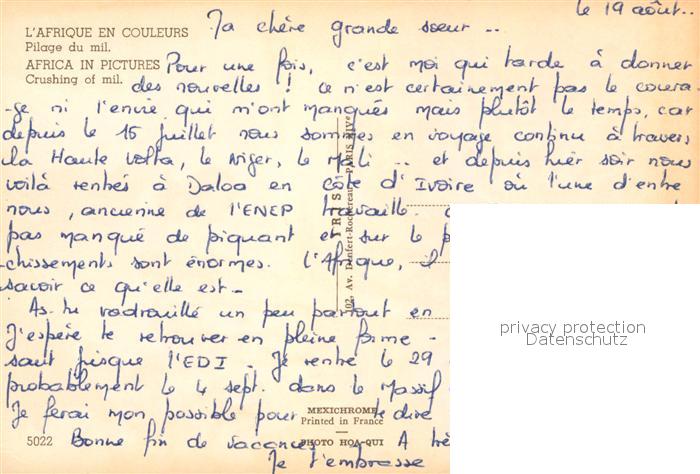 le 19 août..
L'AFRIQUE EN COULEURS
Pilage du mil.
AFRICA IN PICTURES
Crushing of mil.
Ma chère grande sœur ..
Pour une fois, c'est moi qui tarde à donner
des nouvelles ! Ce n'est certainement pas le coura-
-ge ni l'envie qui m'ont manqués mais plutôt le temps, car
depuis le 15 juillet nous sommes en voyage continu à travers
la Haute Volta, le Niger, le Mali .. et depuis hier soir nous
voilà rentrés à Daloa en côte d'Ivoire où l'une d'entre
nous, ancienne de l'ENEP travaille.
pas manqué de piquant et sur le
-chissements sont énormes. L'Afrique, il
savoir ce qu'elle est. -
As-tu vadrouillé un peu partout en
J'espère te retrouver en pleine forme -
sauf l'EDI. Je rentre le 29
probablement le 4 sept. dans le Massif
Je ferai mon possible pour te dire
Bonne fin de vacances. A
Je t'embrasse
IRIS
102, Av. Denfert-Rochereau - PARIS XIVe
MEXICHROME
Printed in France
PHOTO HOA-QUI
5022
privacy protection
Datenschutz